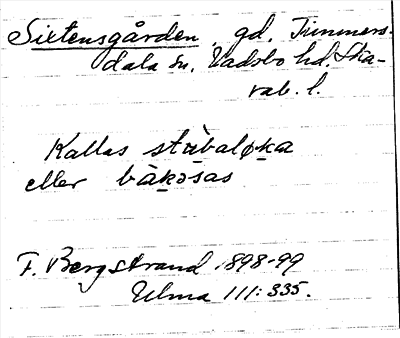 Sixtensgården gd. Timmers-
dala sn. Vadsbo hd. Ska-
rab. l.
Kallas stu̇balø̱ka
eller bȧḵɔsas
F. Bergstrand 1898-99
Ulma 111:335.